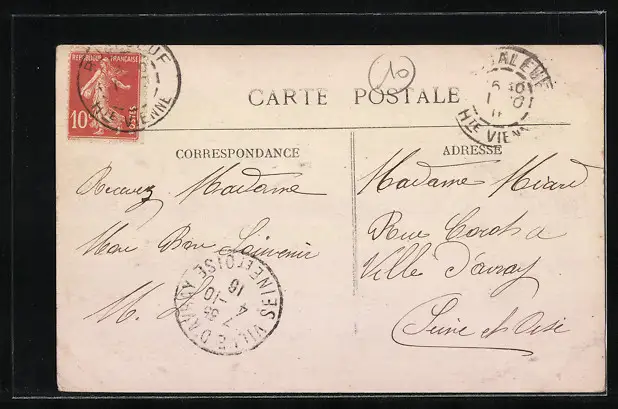 REPUBLIQUE FRANÇAISE
10
POSTES
Hte VIENNE
10
CARTE POSTALE
Hte VIENNE
CORRESPONDANCE
ADRESSE
Recevez Madame
Mon Bon Souvenir
M.
Madame
Rue Corot
Ville d'avray
Seine et Oise
VILLE D'AVRAY
SEINE ET OISE